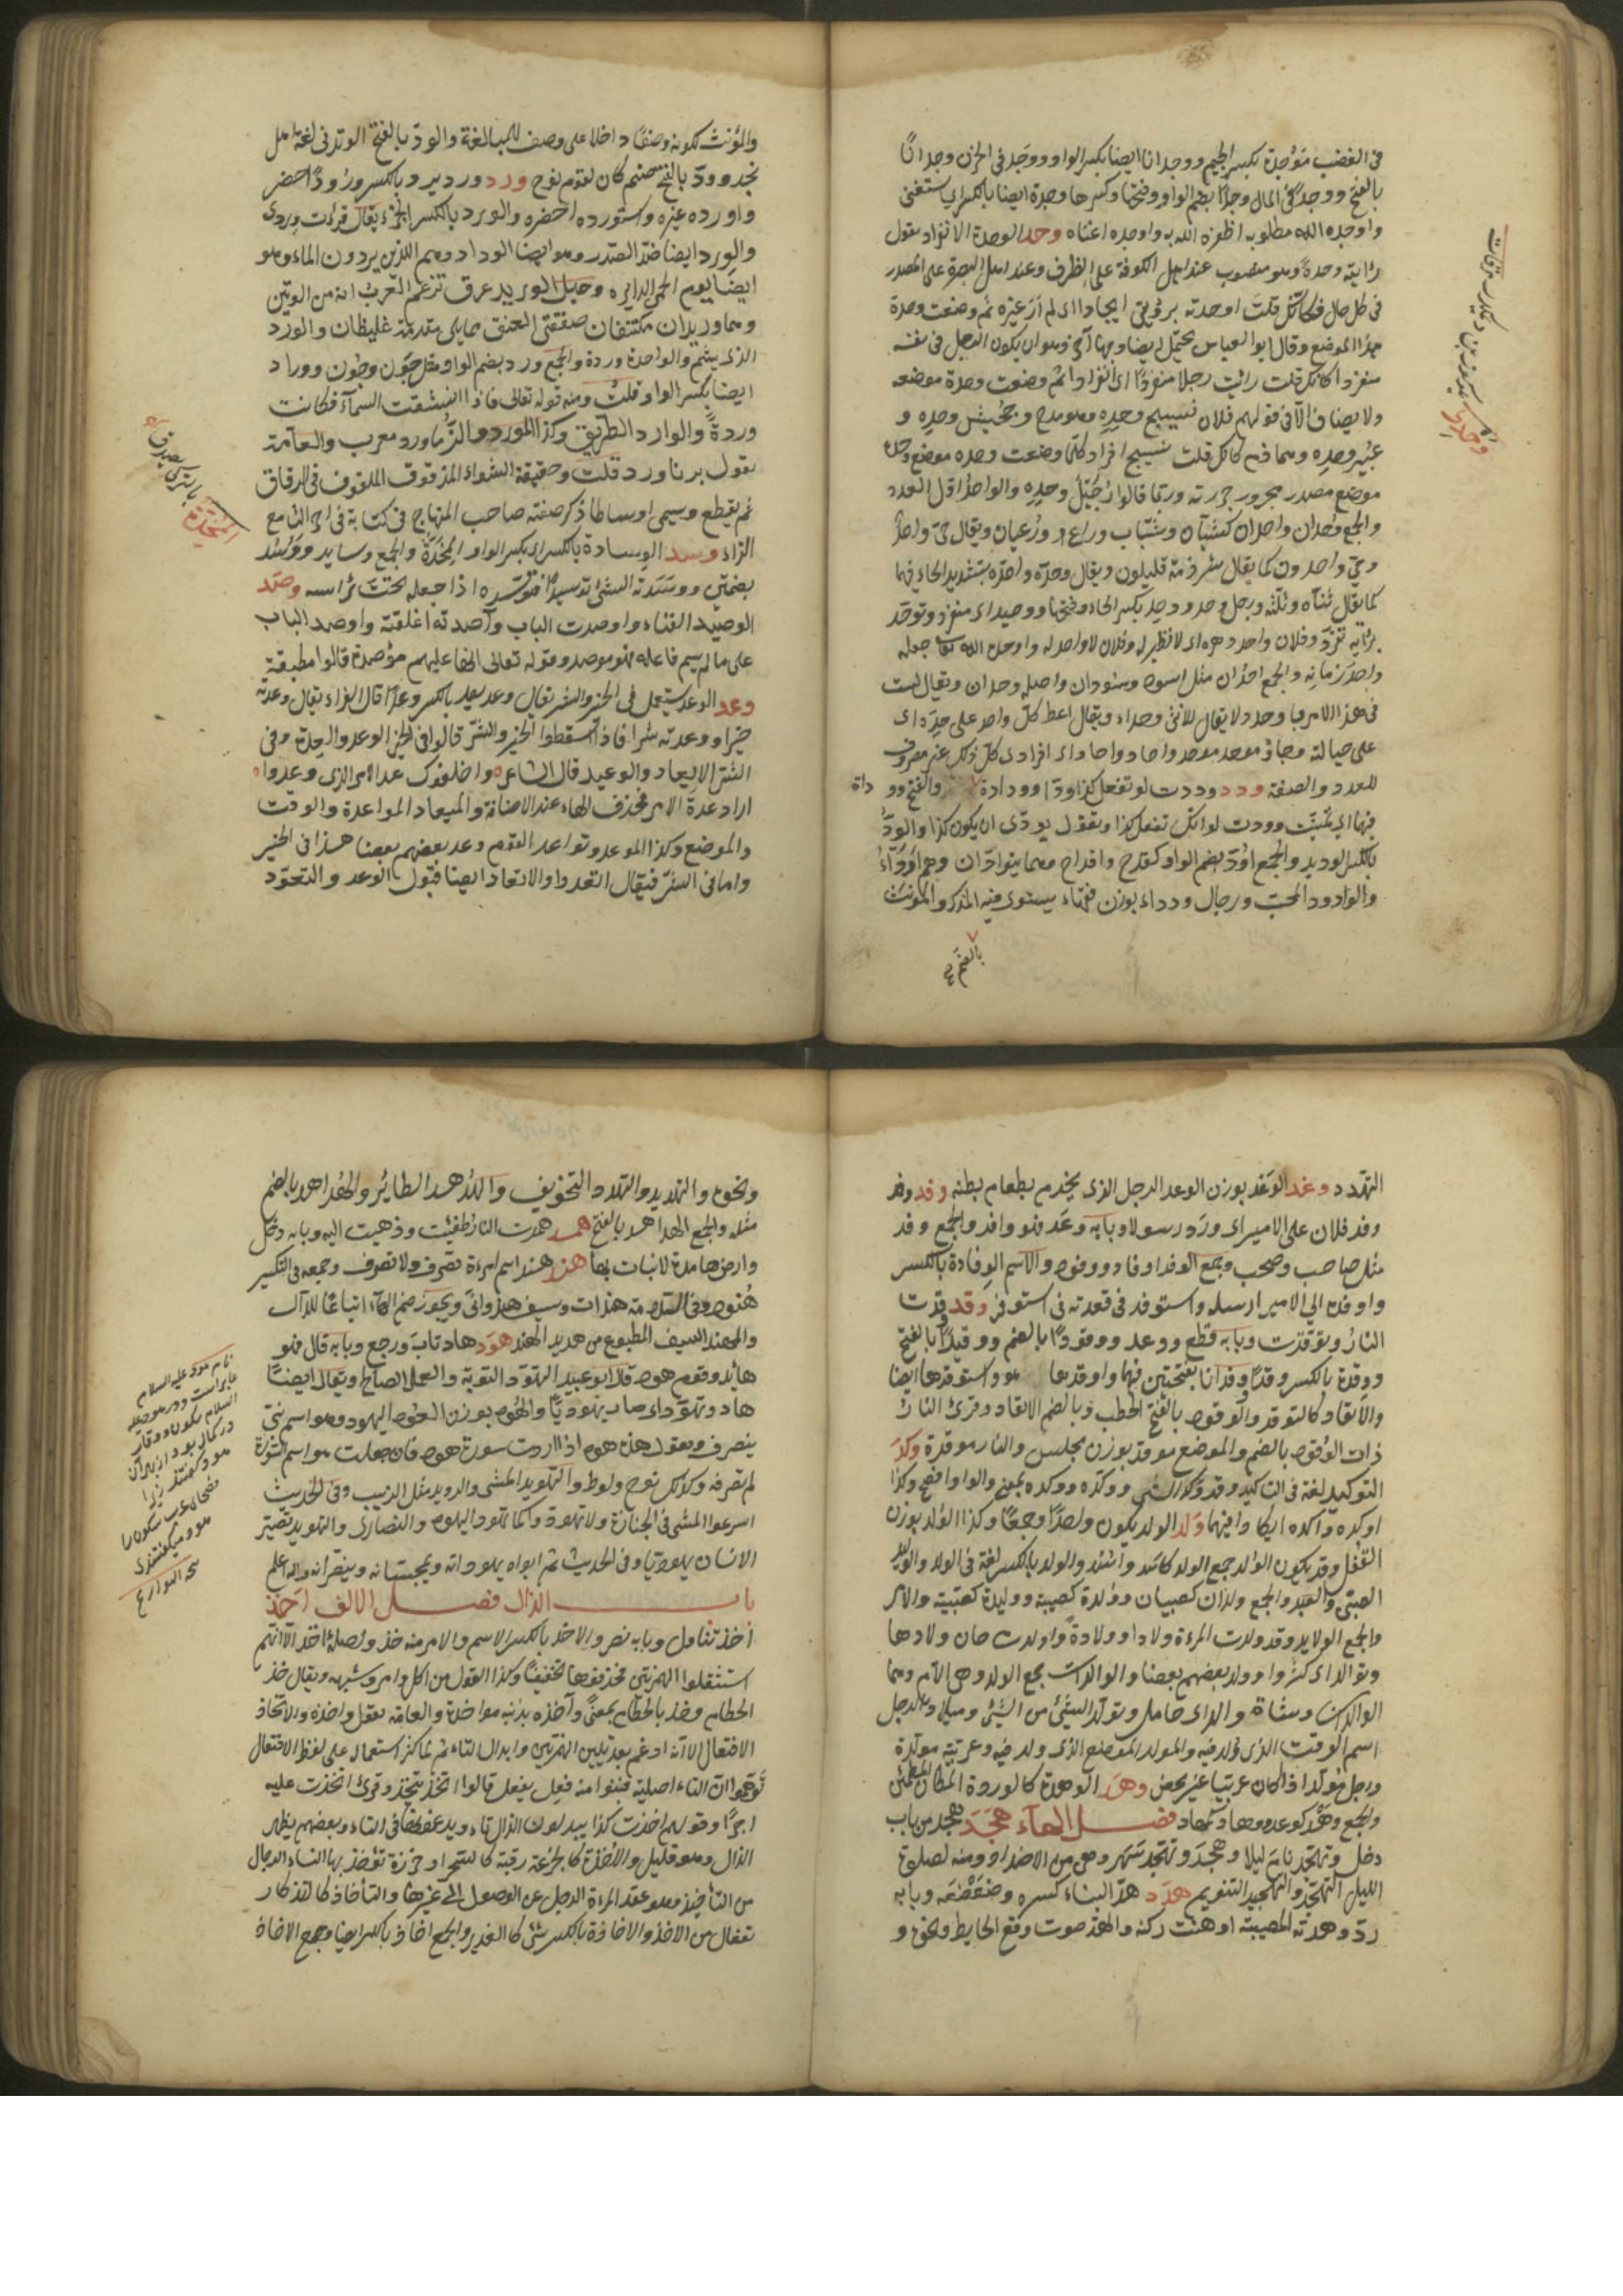 في الغضب موجدة بكسر الجيم ووجدانا ايضا بكسر الواو ووجد في الحزن وجدا
بالفتح ووجد في المال وجدا بضم الواو وفتحها وكسرها وجدة ايضا بالكسر اي استغنى
واوجده الله مطلوبه اظفره الله به واوجده اغناه وحد الوحدة الانفراد يقول
رايته وحده وهو منصوب عند اهل الكوفة على الظرف وعند اهل البصرة على المصدر
في كل حال فكانك قلت اوحدته برؤيتي ايجادا اي لم ار غيره ثم وضعت وحدة
هذا الموضع وقال ابو العباس يحتمل ايضا وجها آخر وهو ان يكون الرجل في نفسه
منفردا كانك قلت رايت رجلا منفردا اي انفرادا ثم وضعت وحدة موضعه
ولا يضاف الا في قولهم فلان نسيج وحده وهو مدح وجحيش وحده و
عيير وحده وهما ذم كانك قلت نسيج افراد كلما وضعت وحده موضع
موضع مصدر مجرور جررته وربما قالوا رجيل وحده والواحد اول العدد
والجمع وحدان واحدان كشبان وشباب وراع ورعيان ويقال حي واحد
وحي واحدون كما يقال شرذمة قليلون ويقال وحده واحده بتشديد الحاء فيهما
كما يقال ثناه وثلثه ورجل وحد ووحد بكسر الحاء وفتحها ووحيد اي منفرد وتوحد
برأيه تفرد وفلان واحد دهره اي لا نظير له وفلان لا واحد له واوحده الله جعله
واحد زمانه والجمع احدان مثل اسود وسودان واصله وحدان ويقال لست
في هذا الامر باوحد ولا يقال للانثى وحداء ويقال اعط كل واحد على حدة اي
على حياله وجاؤا موحد موحد واحاد واحاد اي افرادى كل ذلك غير مصروف
للعدد والصفة ودد وددت لو تفعل كذا ودا وودادة والفتح وو دادة
فيها اي تمنيت ووددت لو انك تفعل كذا ويقول بودي ان يكون كذا والود
بالكسر الوديد والجمع اود بضم الواو كقدح واقداح وهما يتوادان وهم اوداء
والودود المحب ورجال ودداء بوزن فقهاء يستوي فيه المذكر والمونث
بالضم
والمؤنث لكونه وصفا داخلا على وصف للمبالغة والود بالفتح الوتد في لغة اهل
نجد وود بالفتح صنم كان لقوم نوح ورد ورد يرد بالكسر ورودا حضر
واورده غيره واستورده احضره والورد بالكسر الجزء يقال قرأت وردي
والورد ايضا ضد الصدر وهو ايضا الوراد وهم الذين يردون الماء وهو
ايضا يوم الحمى الدايرة وحبل الوريد عرق تزعم العرب انه من الوتين
وهما وريدان مكتنفان صفقتي العنق مما يلي مقدمه غليظان والورد
الذي يشم والواحدة وردة والجمع ورد بضم الواو مثل جون وجون ووراد
ايضا بكسر الواو قلت ومنه قوله تعالى فاذا انشقت السمآء فكانت
وردة والوارد الطريق وكذا المورد والزماورد معرب والعامة
تقول بزماورد قلت وحقيقة الشواء المدقوق الملفوف في الرقاق
ثم يقطع ويسمى اوساطا ذكر صفته صاحب المنهاج في كتابه في
الزاء وسد الوسادة بالكسر المخدة والجمع وسايد ووسد
بضمتين ووسدته الشئ توسيدا فتوسده اذا جعله تحت راسه وصد
الوصيد الفناء واوصدت الباب وآصدته اغلقته واوصد الباب
على ما لم يسم فاعله فهو موصد وقوله تعالى انها عليهم مؤصدة قالوا مطبقة
وعد الوعد يستعمل في الخير والشر يقال وعد يعد بالكسر وعدا قال الفراء يقال وعدته
خيرا ووعدته شرا فاذا اسقطوا الخير والشر قالوا في الخير الوعد والعدة وفي
الشر الايعاد والوعيد قال الشاعر واخلفوك عدا الامر الذي وعدوا
اراد عدة الامر فحذف الهاء عند الاضافة والميعاد المواعدة والوقت
والموضع وكذا الموعد وتواعد القوم وعد بعضهم بعضا هذا في الخير
واما في الشر فيقال اتعدوا والاتعاد ايضا قبول الوعد والتوعد
التهدد وغد الوغد بوزن الوعد الرجل الذي يخدم بطعام بطنه وفد وفد
وفد فلان على الامير اي ورد رسولا وبابه وعد فهو وافد والجمع وفد
مثل صاحب وصحب وجمع الوفد اوفاد ووفود والاسم الوفادة بالكسر
واوفده الى الامير ارسله واستوفد في قعدته في استوفز وقد وقدت
النار وتوقدت وبابه قطع ووعد ووقودا بالضم ووقيدا بالفتح
ووقدة بالكسر وقدا ووقدانا بفتحتين فيهما واوقدها هو واستوقدها ايضا
والاتقاد كالتوقد والوقود بالفتح الحطب وبالضم الاتقاد وقرئ النار
ذات الوقود بالضم والموضع موقد بوزن مجلس والنار موقدة وكد
التوكيد لغة في التاكيد وقد وكد الشئ ووكده بمعنى والواو افصح وكذا
اوكده وآكده ايكادا فيهما ولد الولد يكون واحدا وجمعا وكذا الولد بوزن
القفل وقد يكون الولد جمع الولد كاسد واسد والولد بالكسر لغة في الولد والوليد
الصبي والعبد والجمع ولدان كصبيان وولدة كصبية ووليدة كصبية والامة
والجمع الولايد وقد ولدت المرءة ولادا وولادة واولدت حان ولادها
وتوالدوا اي كثروا وولد بعضهم بعضا والوالد الاب جمع الولد وهي الام وهما
الوالدان وشاة والد اي حامل وتولد الشئ من الشئ وميلاد الرجل
اسم الوقت الذي ولد فيه والمولد الموضع الذي ولد فيه وعربية مولدة
ورجل مولد اذا كان عربيا غير محض وهد الوهدة كالوردة المكان المطمئن
والجمع وهد كوعد ووهاد كمهاد فصل الهاء هجد هجد من باب
دخل وتهجد نام ليلا وهجد وتهجد سهر وهي من الاضداد ومنه لصلوة
الليل التهجد والتهجيد التنويم هدد هد البناء كسره وضعضعه وبابه
رد وهدته المصيبة اوهنت ركنه والهد صوت وقع الحايط ونحوه و
ونحوه والتهديد والتهدد التخويف والهدهد الطائر والهداهد بالضم
مثله والجمع الهداهد بالفتح همد همدت النار طفئت وذهبت البتة وبابه دخل
وارض هامدة لا نبات بها هند هند اسم امرءة تصرف ولا تصرف وجمعه في التكسير
هنود وفي السلامة هندات وسيف هندواني ويجوز ضم الهاء اتباعا للدال
والمهند السيف المطبوع من حديد الهند هود هاد تاب ورجع وبابه قال فهو
هائد وقوم هود قال ابو عبيد التهود التوبة والعمل الصالح ويقال ايضا
هاد وتهود اي صار يهوديا والهود بوزن العود اليهود وهو اسم نبي
ينصرف ويقول هذه هود اذا اردت سورة هود فان جعلت هو اسم السورة
لم تصرفه وكذلك نوح ولوط والتهويد المشي الرويد مثل الدبيب وفي الحديث
اسرعوا المشي في الجنازة ولا تهودوا كما تهود اليهود والنصارى والتهويد تصيير
الانسان يهوديا وفي الحديث ثم ابواه يهودانه ويمجسانه وينصرانه والله اعلم
باب الذال فصل الالف اخذ
اخذ تناول وبابه نصر والاخذ بالكسر الاسم والامر منه خذ واصله اخذ الا انهم
استثقلوا الهمزتين فحذفوهما تخفيفا وكذا القول من اكل وامر وشبهه ويقال خذ
الخطام وخذ بالخطام بمعنى وآخذه بذنبه مواخذة والعامة تقول واخذه والاتخاذ
الافتعال الا انه ادغم بعد تليين الهمزة وابدال التاء ثم لما كثر استعماله على لفظ الافتعال
توهموا ان التاء اصلية فبنوا منه فعل يفعل قالوا تخذ يتخذ وقرئ لتخذت عليه
اجرا وقولهم اخذت كذا يبدلون الذال تاء ويدغمونها في التاء وبعضهم يظهر
الذال وهو قليل والاخذة كالجرعة رقية كالسحر او خرزة تؤخذ بها النساء الرجال
من التأخيذ وهو عقد المرءة الرجل عن الوصول الى غيرها والتأخاذ كالتذكار
تفعال من الاخذ والاخاذة بالكسر شئ كالغدير والجمع اخاذ بالكسر ايضا وجمع الاخاذ